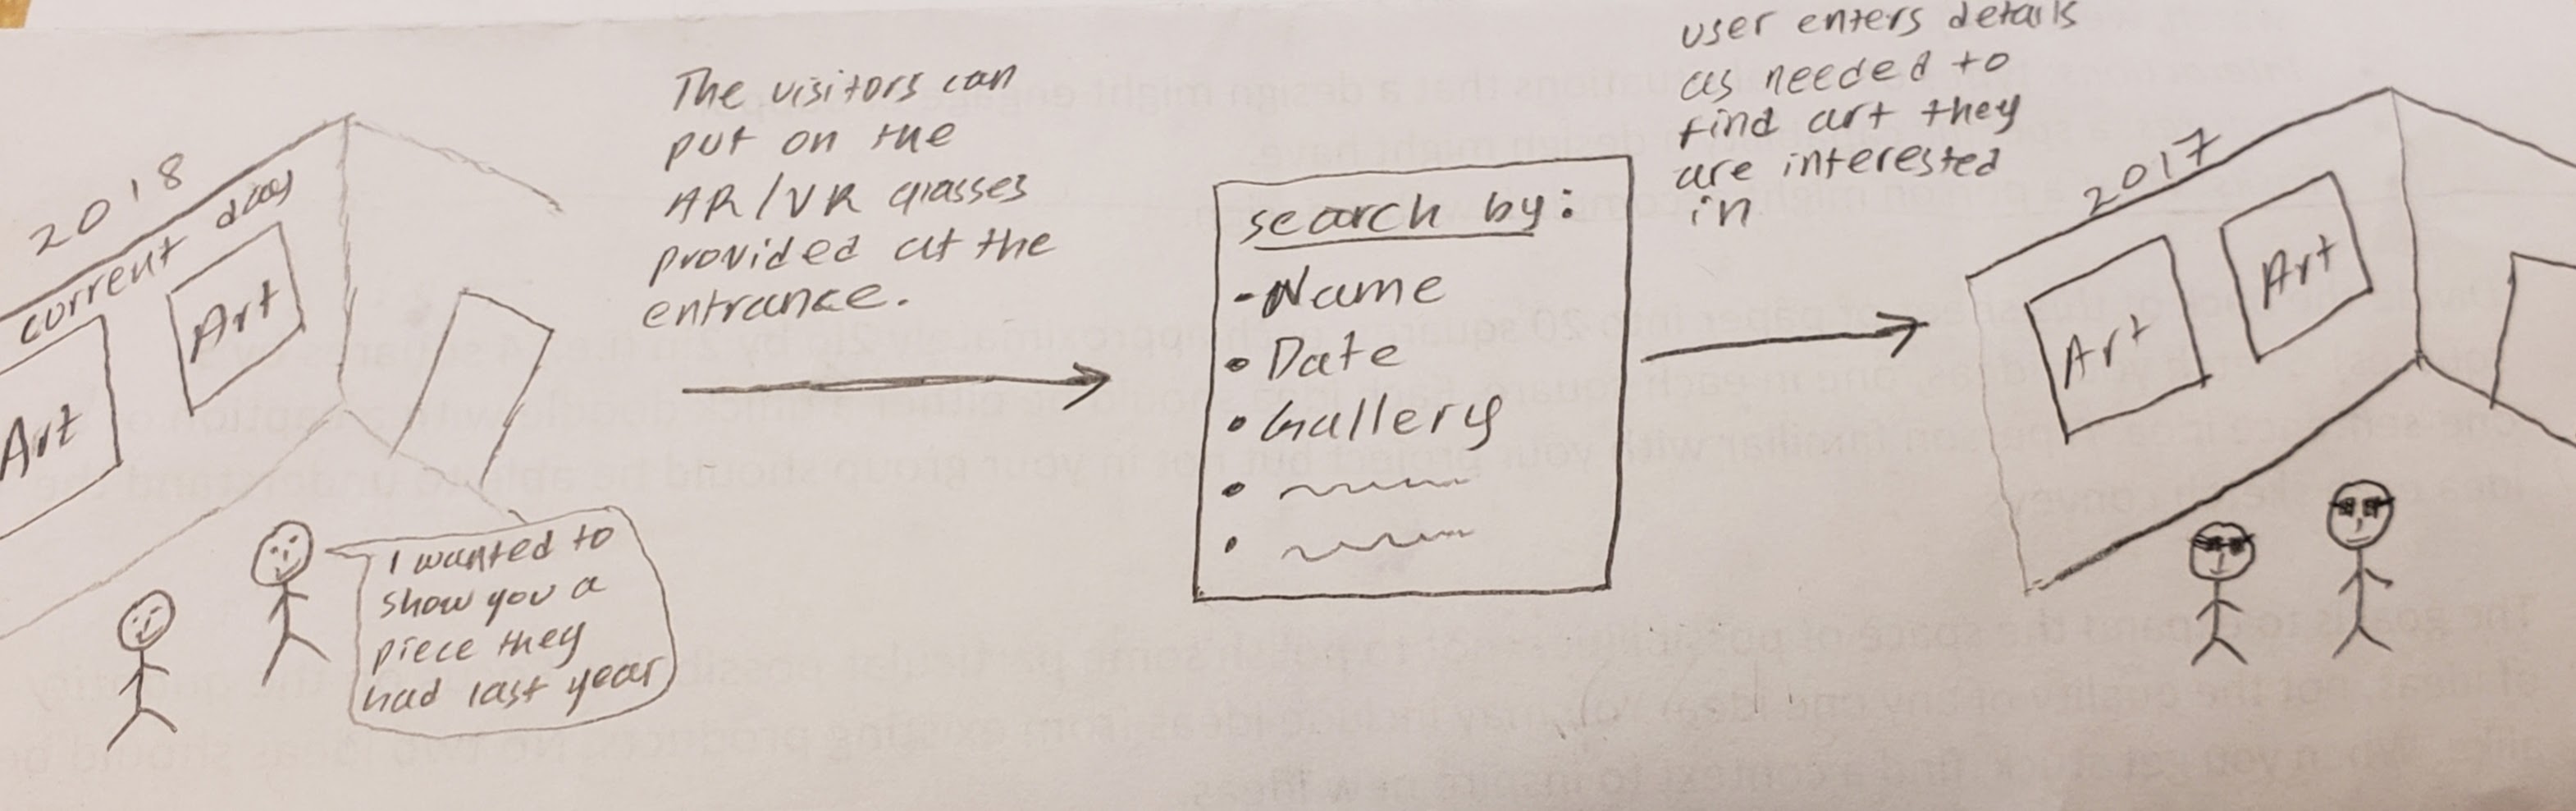 2018
current day
Art
Art
I wanted to
show you a
piece they
had last year
The visitors can
put on the
AR/VR glasses
provided at the
entrance.
search by:
-Name
• Date
• Gallery
•
•
user enters details
as needed to
find art they
are interested
in
2017
Art
Art